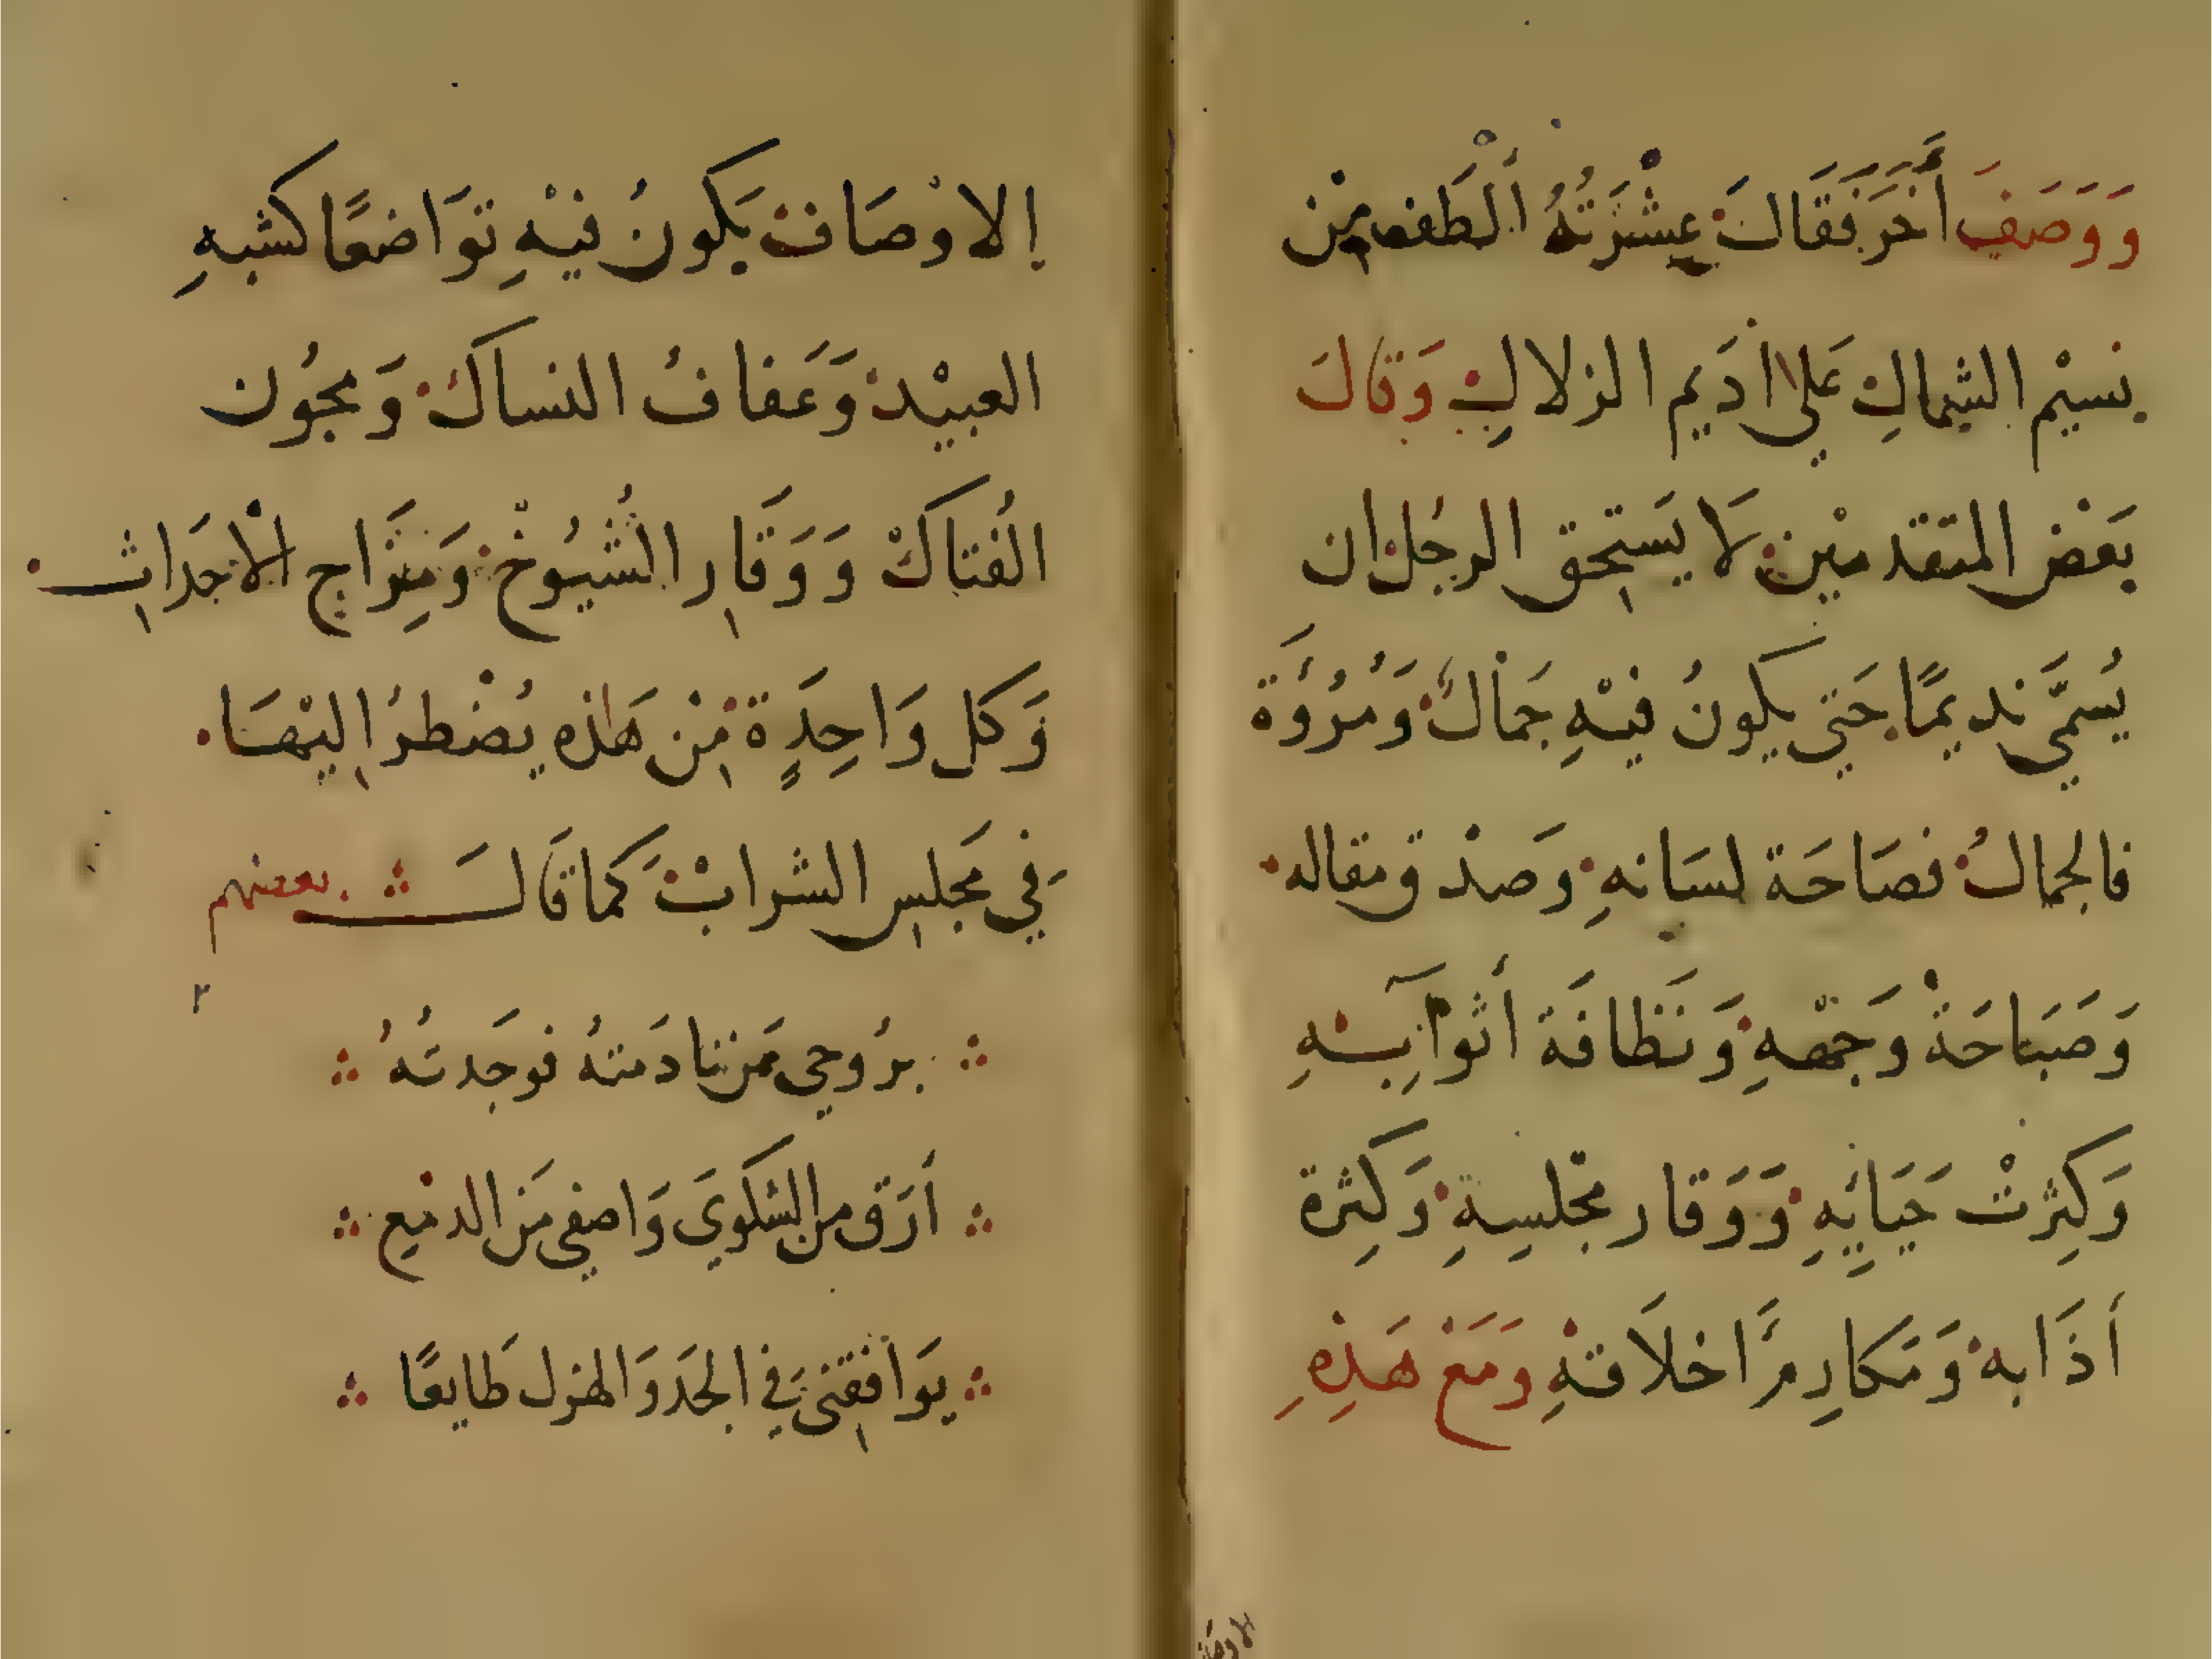 وَوَصَفَ أَخَرَ فَقَالَ عِشْرَتُهُ أَلْطَف مِنْ
نسيْم الشمالِ عَلى اَدَيم الزلالِ وَقالَ
بَعْض المتقدميْن لَا يَستحق الرجُل ان
يُسمَّي نديمًا حَتي يكونُ فيْهِ جَمالٌ وَمُرُؤَة
فالجمالُ فصَاحَة لسَانهِ وَصدْق مقاله
وَصَبَاحَةْ وَجّههِ وَنَظافَة أثوابِهِ
وَكِثرتْ حَيَائِهِ وَوَقار مجْلسِهِ وَكِثرة
أدَابه وَمَكارِم اَخلَاقهِ وَمَعْ هَذِهِ
الاوْصَاف يَكونُ فيْهِ توَاضعًا كشبهِ
العبيْد وَعَفافُ النساكْ وَمجُون
الفُتاكْ وَوَقَارِ الشُّيُوخْ وَمِزَاجِ الْاحَداثِ
وَكل وَاحِدَةٍ مِنْ هَاذه يُضْطرُ اِليْهَا
فَي مَجلسِ الشرابْ كَما قَالَ بعضهم
برُوحي مَن نادَمتهُ فوَجَدتهُ
أرَق من الشكوَي وَاصفي مَن الدمْع
يوَافقِني فَي الجَد وَالهزل طَايعًا
الاوصاف